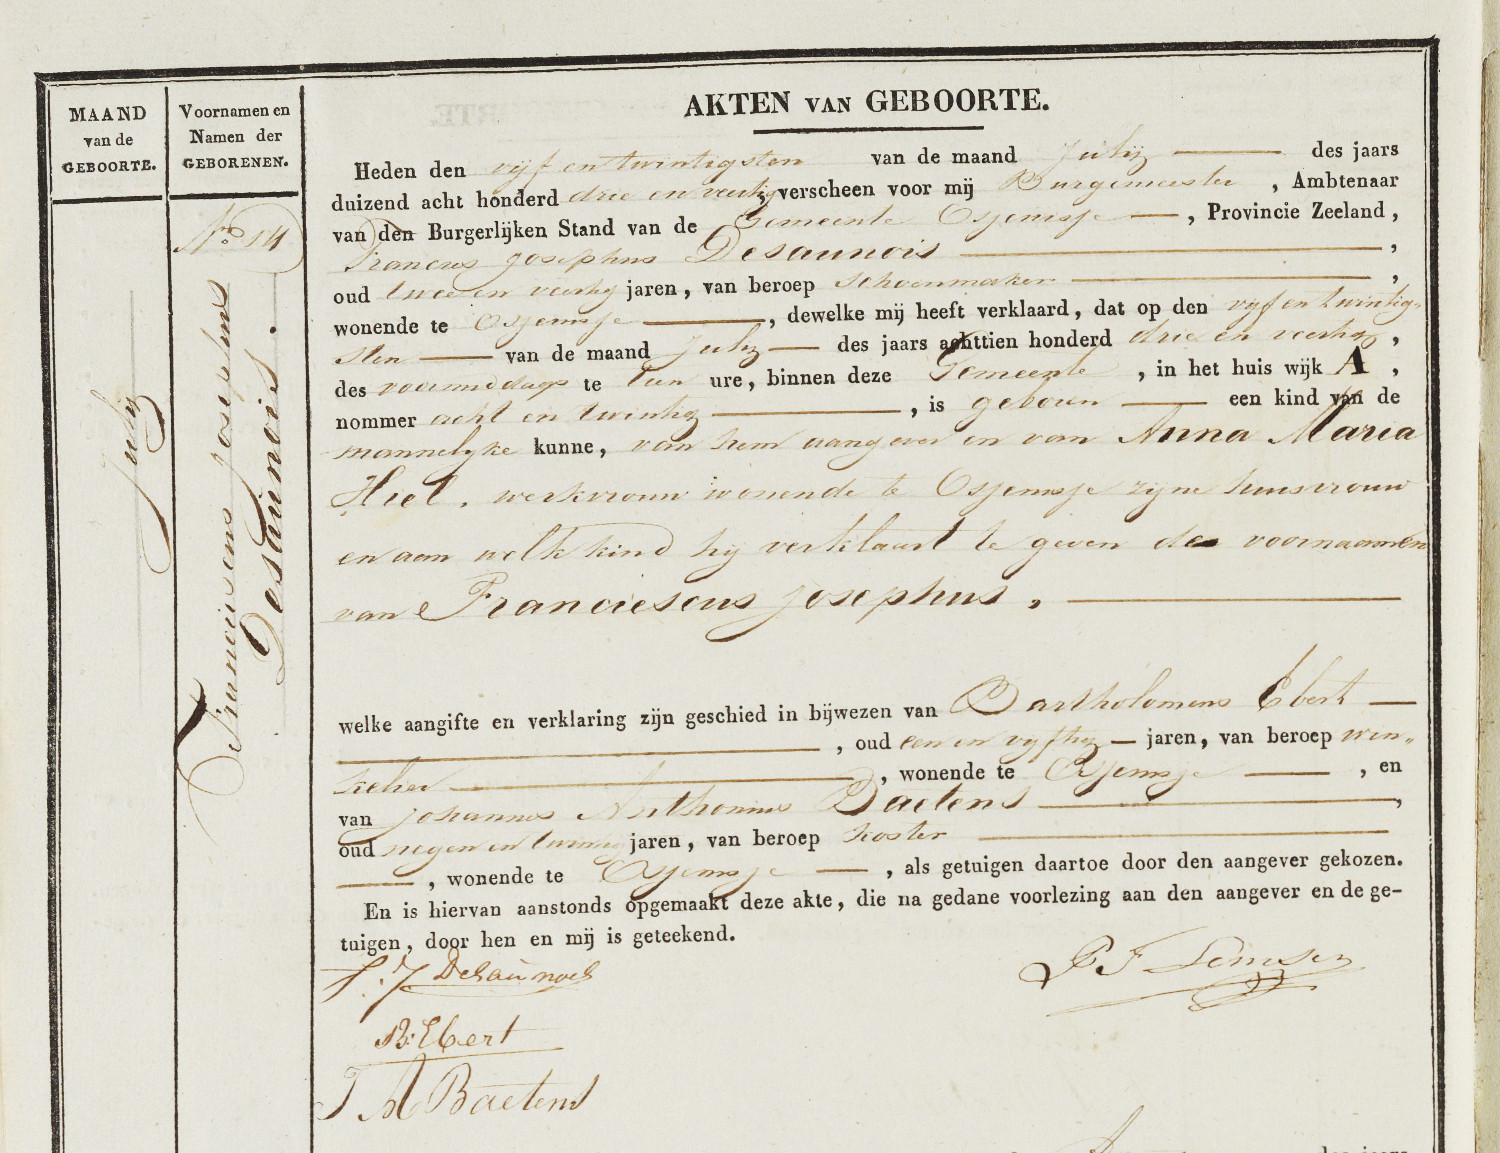 MAAND
van de
GEBOORTE.
Voornamen en
Namen der
GEBORENEN.
AKTEN VAN GEBOORTE.
July
No 14
Franciscus Josephus
Desaunois.
Heden den vijf en twintigsten van de maand Julij des jaars
duizend acht honderd drie en veertig, verscheen voor mij Burgemeester, Ambtenaar
van den Burgerlijken Stand van de Gemeente Ossenisse, Provincie Zeeland,
Francus Josephus Desaunois,
oud twee en veertig jaren, van beroep schoenmaker,
wonende te Ossenisse, dewelke mij heeft verklaard, dat op den vijf en twintig-
sten van de maand July des jaars achttien honderd drie en veertig,
des voormiddags te tien ure, binnen deze Gemeente, in het huis wijk A,
nommer acht en twintig, is geboren een kind van de
mannelyke kunne, van hem aangever en van Anna Maria
Hiel, werkvrouw wonende te Ossenisse zijne huisvrouw
en aan welk kind hij verklaart te geven de voornaamen
van Franciescus Josephus.
welke aangifte en verklaring zijn geschied in bijwezen van Bartholomeus Ebert
, oud een en vyftig jaren, van beroep win-
kelier, wonende te Ossenisse, en
van Johannes Anthonius Baetens,
oud negen en twintig jaren, van beroep koster
, wonende te Ossenisse, als getuigen daartoe door den aangever gekozen.
En is hiervan aanstonds opgemaakt deze akte, die na gedane voorlezing aan den aangever en de ge-
tuigen, door hen en mij is geteekend.
F. J Desaunoes
P F
B: Ebert
J A Baetens
des jaars